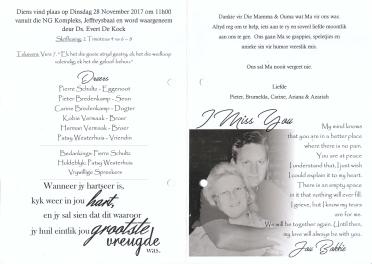 Diens vind plaas op Dinsdag 28 November 2017 om 11h00
vanuit die NG Kompleks, Jeffreysbaai en word waargeneem
deur Ds. Evert De Kock
Skriflesing: 2 Timoteus 4 vs 6 – 8
Teksvers: Vers 7. "Ek het die goeie stryd gestry, ek het die wedloop
voleindig, ek het die geloof behou."
Draers
Pierre Schultz - Eggenoot
Pieter Bredenkamp - Seun
Carine Bredenkamp - Dogter
Kobie Vermaak - Broer
Herman Vermaak - Broer
Patsy Westerhuis - Vriendin
Bedankings: Pierre Schultz
Huldeblyk: Patsy Westerhuis
Vrywillige Sprekers
Wanneer jy hartseer is,
kyk weer in jou hart,
en jy sal sien dat dit waaroor
jy huil eintlik jou grootste
vreugde
was.
Dankie vir Die Mamma & Ouma wat Ma vir ons was.
Altyd reg om te help, iets aan te ry en soveel liefde moontlik
aan ons te gee. Ons gaan Ma se grappies, speletjies en
unieke sin vir humor vreeslik mis.
Ons sal Ma nooit vergeet nie.
Liefde
Pieter, Brumelda, Carine, Ariana & Azariah
I Miss You
My mind knows
that you are in a better place
where there is no pain.
You are at peace
I understand that, I just wish
I could explain it to my heart.
There is an empty space
in it that nothing will ever fill
I grieve, but I know my tears
are for me.
We will be together again. Until then,
my love will always be with you.
Jou Bokkie